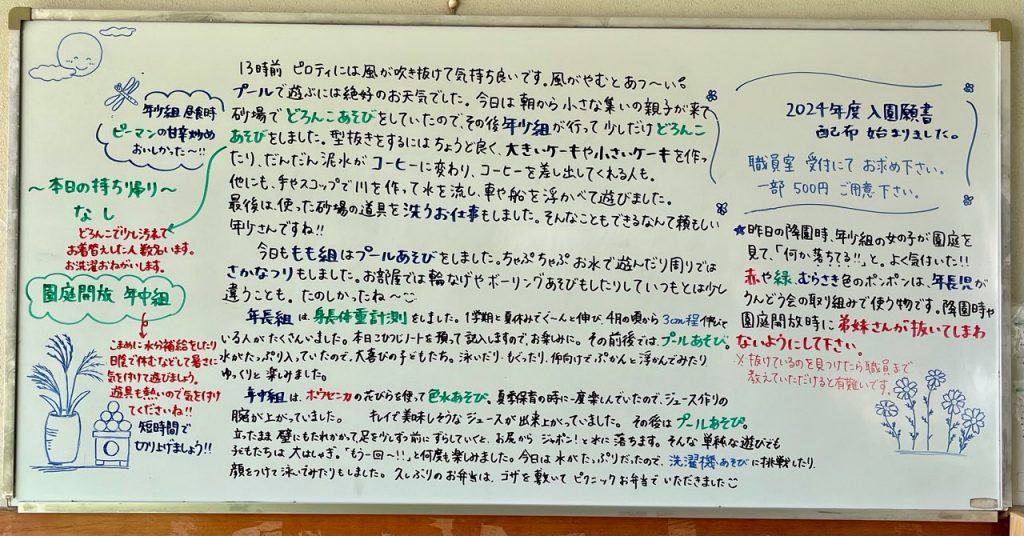 13時前 ピロティには風が吹き抜けて気持ち良いです。風がやむとあつ〜い。
プールで遊ぶには絶好のお天気でした。今日は朝から小さな集いの親子が来て
砂場でどろんこあそびをしていたので、その後年少組が行って少しだけどろんこ
あそびをしました。型抜きをするにはちょうど良く、大きいケーキや小さいケーキを作っ
たり、だんだん泥水がコーヒーに変わり、コーヒーを差し出してくれる人も。
他にも、手やスコップで川を作って水を流し、車や船を浮かべて遊びました。
最後は、使った砂場の道具を洗うお仕事もしました。そんなこともできるなんて頼もしい
年少さんですね!!
今日ももも組はプールあそびをしました。ちゃぷちゃぷお水で遊んだり周りでは
さかなつりもしました。お部屋では輪なげやボーリングあそびもしたりしていつもとは少し
違うことも。たのしかったね〜
年長組は身長体重計測をしました。1学期と夏休みでぐ〜んと伸び、4月の頃から3cm程伸びて
いる人がたくさんいました。本日こひつじノートを預って記入しますので、お楽しみに。その前後では、プールあそび。
水がたっぷり入っていたので、大喜びの子どもたち。泳いだり・もぐったり、仰向けでぷかんと浮かんでみたり
ゆっくりと楽しみました。
年中組は、ホウセンカの花びらを使って色水あそび。夏季保育の時に一度楽しんでいたので、ジュース作りの
腕が上がっていました。 キレイで美味しそうなジュースが出来上がっていました。その後はプールあそび。
立ったまま壁にもたれかかって足を少しずつ前にずらしていくと、お尻からジャボン!と水に落ちます。そんな単純な遊びでも
子どもたちは大はしゃぎ。「もう一回〜!!」と何度も楽しみました。今日は水がたっぷりだったので、洗濯機あそびに挑戦したり、
顔をつけて泳いでみたりもしました。久しぶりのお弁当は、ゴザを敷いてピクニックお弁当でいただきました
年少組 昼食時
ピーマンの甘辛炒め
おいしかった〜!!
〜本日の持ち帰り〜
なし
どろんこで少し汚れて
お着替えした人数名います。
お洗濯おねがいします。
園庭開放 年中組
こまめに水分補給をしたり
日陰で休むなどして暑さに
気を付けて遊びましょう。
遊具も熱いので気を付け
てくださいね!!
短時間で
切り上げましょう!!
2024年度 入園願書
配布 始まりました。
職員室 受付にて お求め下さい。
一部 500円 ご用意下さい。
★昨日の降園時、年少組の女の子が園庭を
見て、「何か落ちてる!!」と。よく気付いた!!
赤や緑、むらさき色のポンポンは、年長児が
うんどう会の取り組みで使う物です。降園時や
園庭開放時に弟妹さんが抜いてしまわ
ないようにして下さい。
※抜けているのを見つけたら職員まで
教えていただけると有難いです。